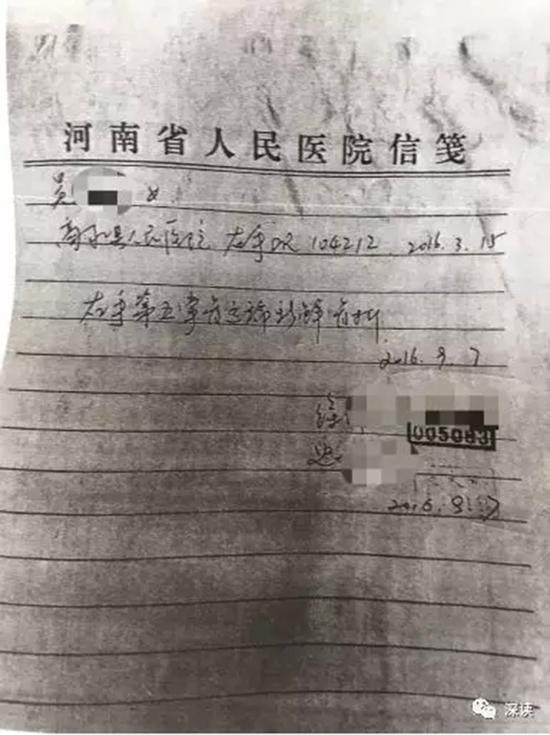 河南省人民医院信笺
吴 女
商水县人民医院 左手DR 104212. 2016.3.15
左手第五掌骨远端新鲜骨折.
2016.9.7
徐
005083
2016.9.7
深读